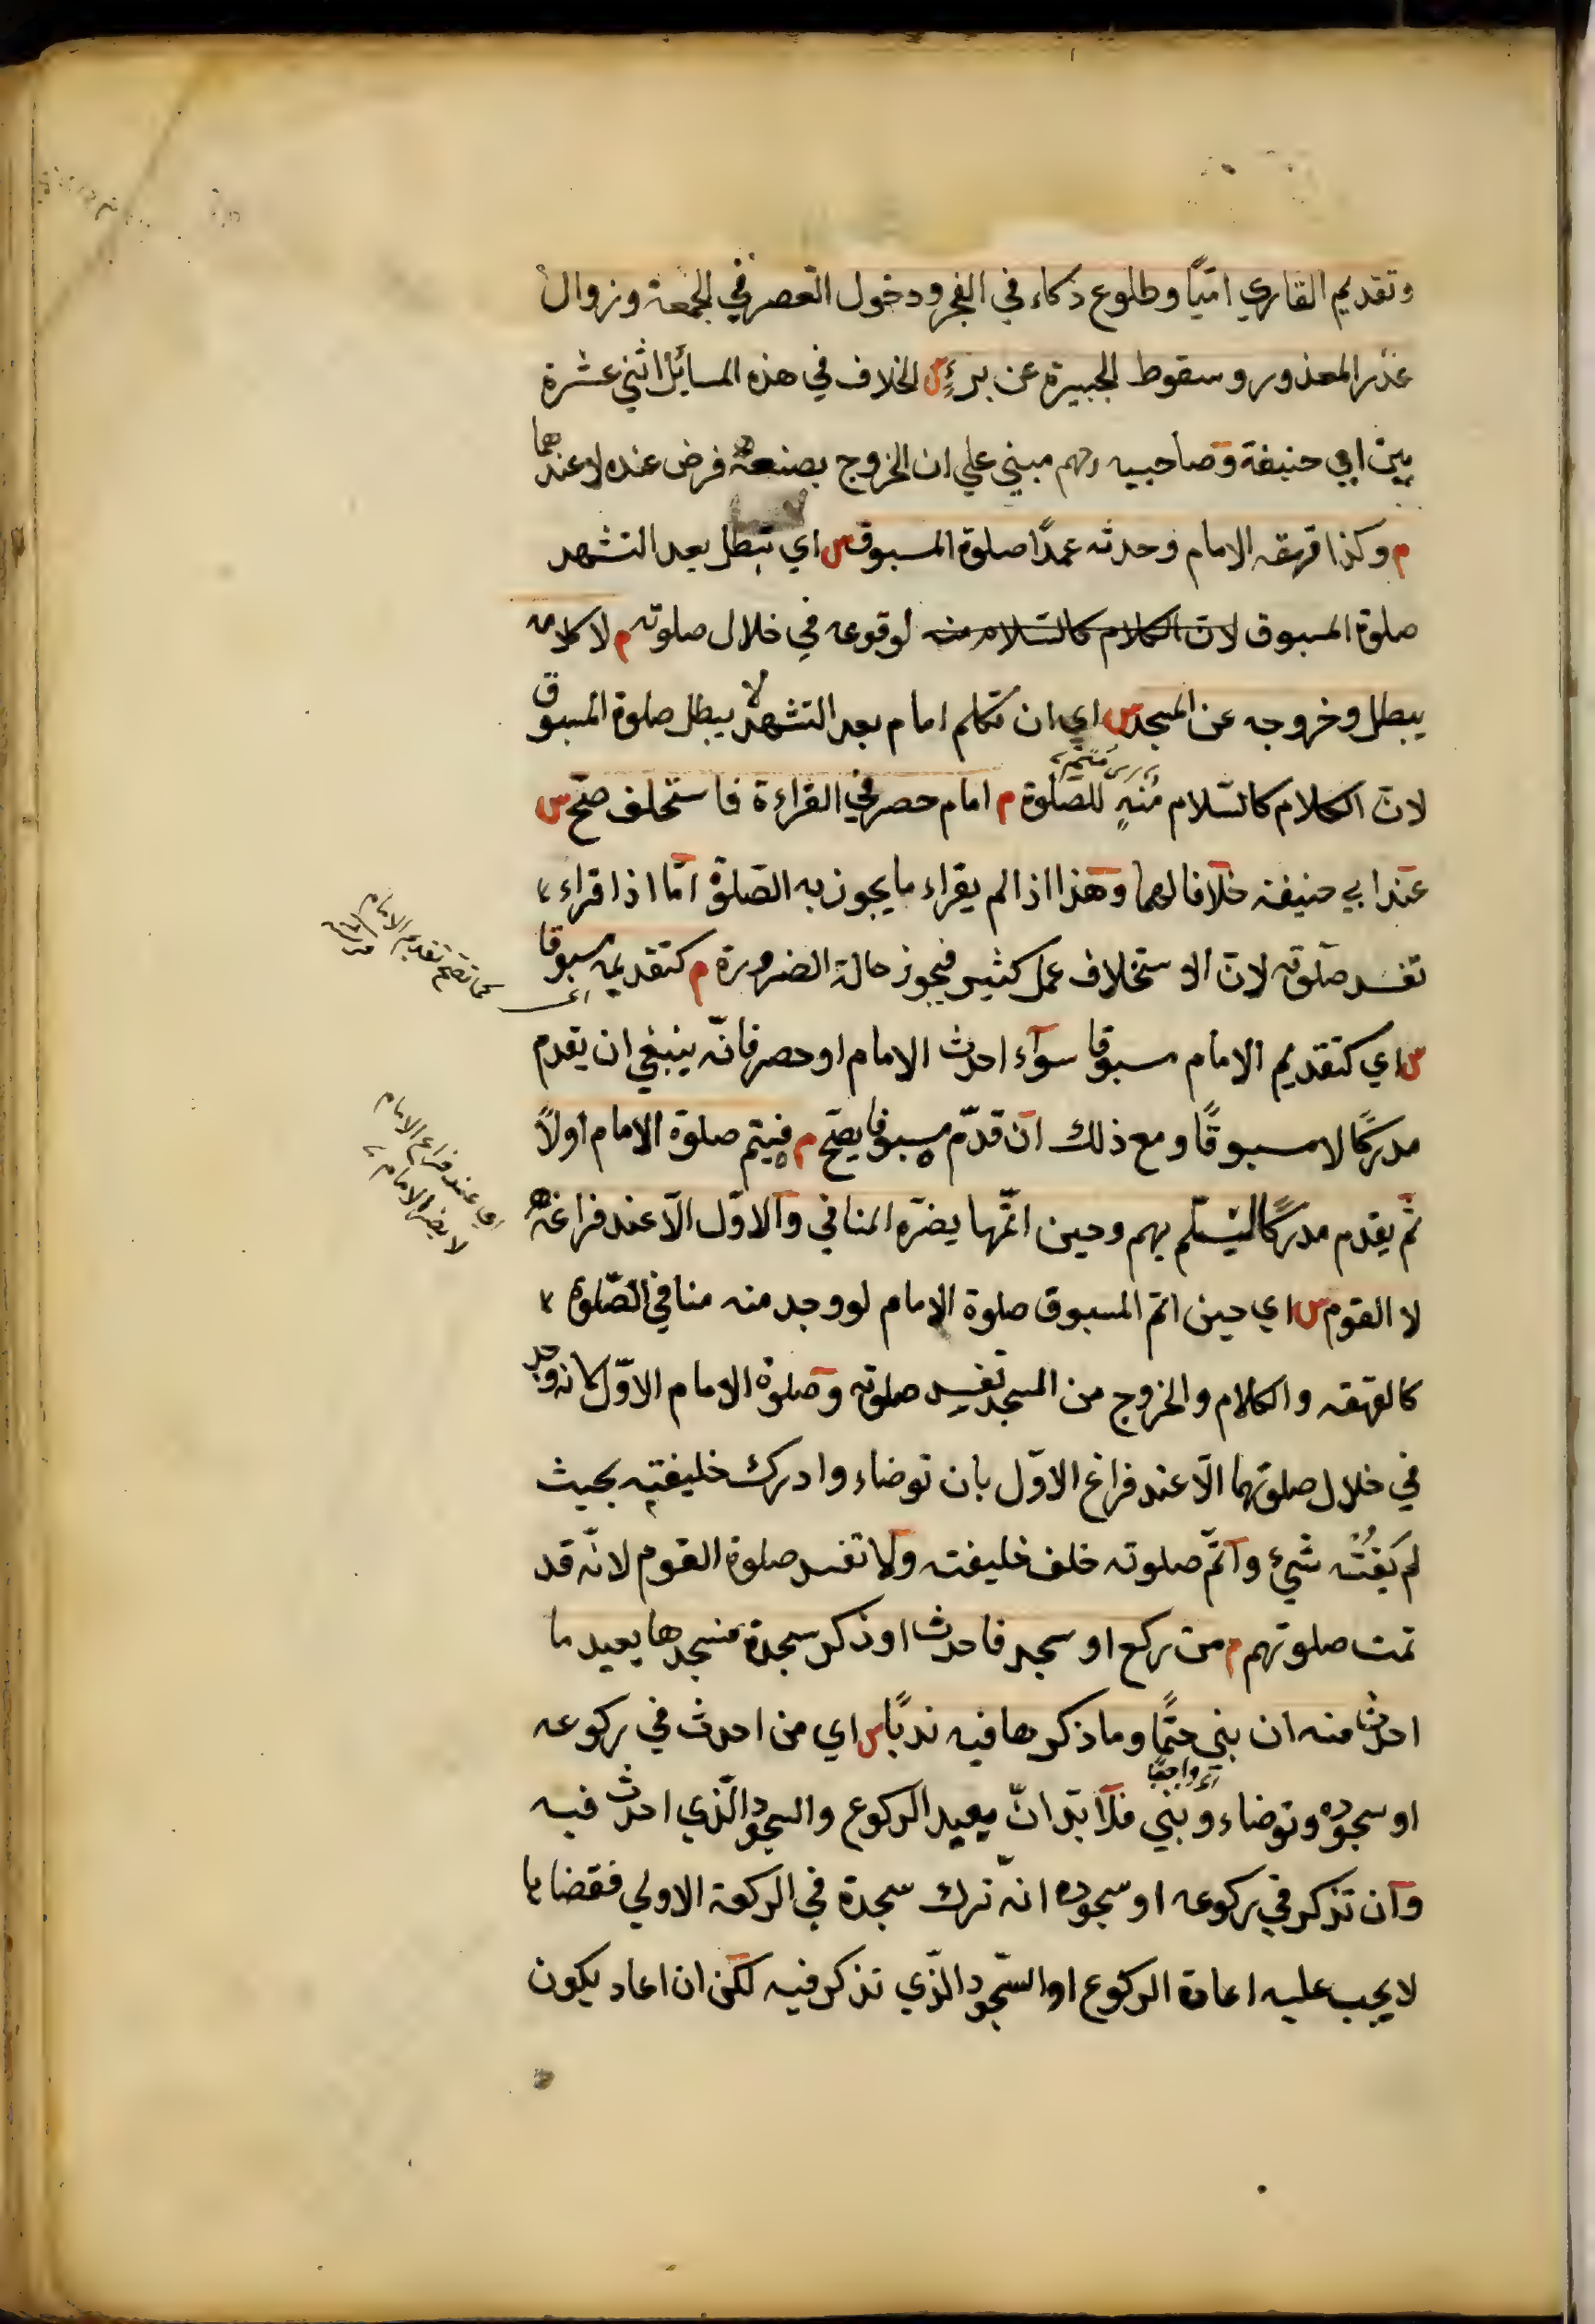 وتقديم القاري اميًّا وطلوع ذكاء في الفجر ودخول العصر في الجمعة وزوال
عذر المعذور وسقوط الجبيرة عن برءٍ س الخلاف في هذه المسائل اثني عشرة
بين ابي حنيفة وصاحبيه رحهم مبني علي ان الخروج بصنعه فرض عنده لا عندهما
م وكذا قهقهه الامام وحدثه عمدًا صلوة المسبوق س اي تبطل بعد التشهد
صلوة المسبوق لان الكلام كالسلام منه لوقوعه في خلال صلوته م لا كلامه
يبطل وخروجه عن المسجد س اي ان تكلم امام بعد التشهد لا يبطل صلوة المسبوق
لان الكلام كالسّلام مُنهٍ للصّلوة م امام حصر في القراءة فاستخلف صحّ س
عند ابي حنيفة خلافا لهما وهذا اذا لم يقراء ما يجوز به الصّلوة امّا اذا قراء
تفسد صلوته لانّ الاستخلاف عمل كثير فيجوز حالة الضرورة م كتقديمه مسبوقا
س اي كتقديم الامام مسبوقا سوآء احدث الامام او حصر فانّه ينبغي ان يقدم
مدركًا لا مسبوقًا ومع ذلك ان قدّم مسبوقا يصحّ م فيتم صلوة الامام اولاً
ثمّ يقدم مدركًا ليسلّم بهم وحين اتمّها يضرّه المنافي والاوّل الّا عند فراغه
لا القوم س اي حين اتم المسبوق صلوة الامام لو وجد منه منافي الصّلوة
كالقهقه والكلام والخروج من المسجد تفسد صلوته وصلوة الامام الاوّل لانه وجد
في خلال صلوتهما الّا عند فراغ الاوّل بان توضاء وادرك خليفته بحيث
لم يَفُتْه شيءٌ واتمّ صلوته خلف خليفته ولا تفسد صلوة القوم لانّه قد
تمت صلوتهم م من ركع او سجد فاحدث او ذكر سجدة فسجدها يعيد ما
احدث منه ان بني حتمًا وما ذكرها فيه ندبًا س اي من احدث في ركوعه
اي واجبًا
او سجوده وتوضاء وبني فلا بدّ انّ يعيد الركوع والسجود الّذي احدث فيه
وان تذكر في ركوعه او سجوده انّه ترك سجدة في الركعة الاولي فقضاها
لا يجب عليه اعادة الركوع او السّجود الّذي تذكر فيه لكن ان اعاد يكون
كما تصح تقديم الامام
اي عند فراغ الامام
لا يضر الامام